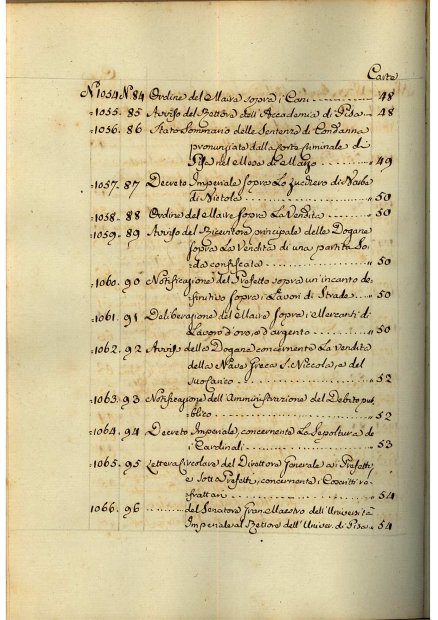 Carte
N.° 1054 N.° 84 Ordine del Maire sopra i Cani ............ 48
" 1055. 85 Avviso del Rettore dell'Accademia di Pisa .. " 48
" 1056. 86 Stato Sommario delle Sentenze di Condanna
pronunziate dalla Corte Criminale di
Pisa nel Mese di Marzo ........ " 49
" 1057. 87 Decreto Imperiale sopra Lo Zucchero di Barbe
di Bietola ................ " 50
" 1058. 88 Ordine del Maire sopra La Vendita ...... " 50
" 1059. 89 Avviso del Ricevitore principale delle Dogane
sopra La Vendita di una partita
confiscata .............. " 50
" 1060. 90 Notificazione del Prefetto sopra un'incanto de-
finitivo sopra i Lavori di Strade ...... " 50
" 1061. 91 Deliberazione del Maire sopra i Mercanti di
Lavoro d'oro, e d'argento ........ " 50
" 1062. 92 Avviso delle Dogane concernente La Vendita
della Nave Greca S. Niccola, e del
suo Carico ................ " 52
" 1063. 93 Notificazione dell'Amministrazione del Debito pu-
blico .................. " 52
" 1064. 94 Decreto Imperiale, concernente La Sepoltura de
i Cardinali .............. " 53
" 1065. 95 Lettera Circolare del Direttore Generale ai Prefetti,
e Sotto Prefetti, concernente i Coscritti re-
frattari ................ " 54
1066. 96 ........ del Senatore Gran Maestro dell'Università
Imperiale al Rettore dell'Univer. di Pisa " 54